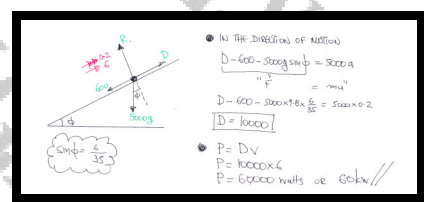 R.
D
0.2
6
600
ϕ
5000g
ϕ
sinϕ = 6/35
IN THE DIRECTION OF MOTION
D - 600 - 5000g sinϕ = 5000a
"F = ma"
D - 600 - 5000×9.8×6/35 = 5000×0.2
D = 10000
P = Dv
P = 10000×6
P = 60000 watts or 60kw//